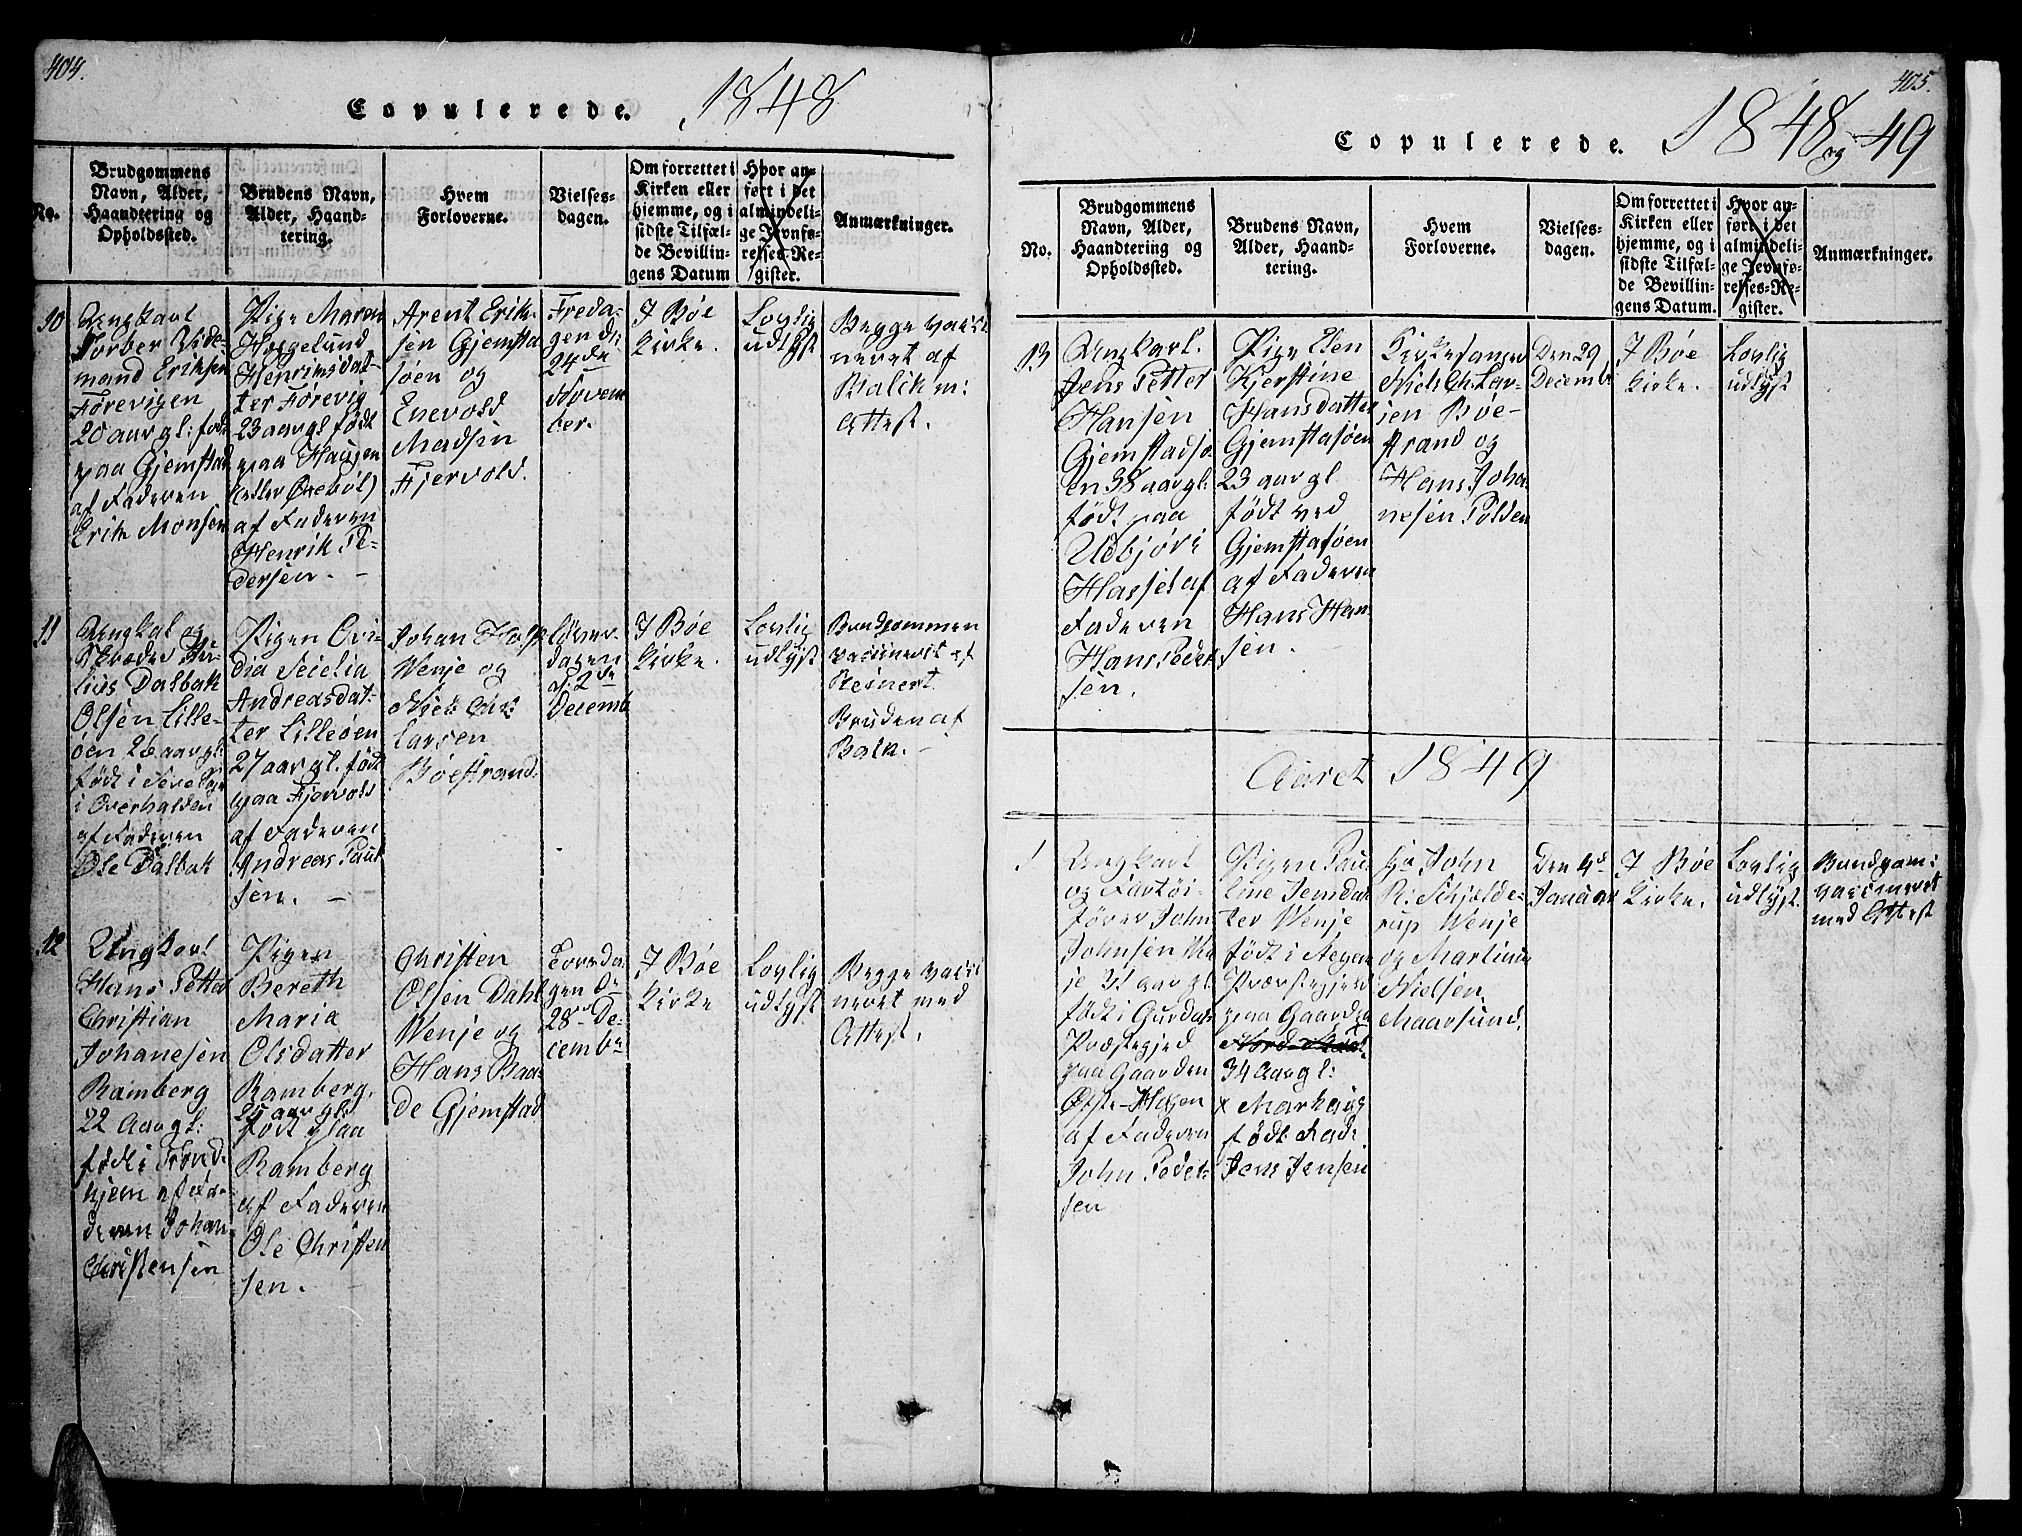 404.
Copulerede. 1848
No.
Brudgommens
Navn, Alder,
Haandtering og
Opholdssted.
Brudens Navn,
Alder, Haand-
tering.
Hvem
Forloverne.
Vielses-
dagen.
Om forrettet i
Kirken eller
hjemme, og i
sidste Tilfæl-
de Bevillin-
gens Datum
Hvor an-
ført i det
almindeli-
ge Jevnfø-
relses-Re-
gister.
Anmærkninger.
10
Ungkarl
Torber Vide-
mand Eriksen
Førevigen
20 aar gl: født
paa Gjemstad
af Faderen
Erik Monsen
Pige Maren
Heggelund
Henriksdat-
ter Førevig
23 aar gl født
paa Haugen
(eller Ørebøl)
af Faderen
Henrik Pe-
dersen. -
Arent Erik-
sen Gjemsta
søen og
Enevold
Madsen
Fjervold.
Freda-
gen d.
24de
Novem
ber.
I Bøe
Kirke.
Lovlig
udlyst
Begge vacci
neret af
Balck m:
Attest.
11
Ungkal og
Skræder Ju-
lius Dalbak
Olsen Lille-
øen 26 aar gl:
født i
i Overhalden
af Faderen
Ole Dalbak
Pigen Ovi-
dia Seselia
Andreasdat-
ter Lilleøen
27 aar gl. født
paa Fjervold
af Faderen
Andreas Paul
sen. -
Johan
Wenje og
Niels Chr.
Larsen
Bøestrand.
Løver-
dagen
d. 2den
Decemb
I Bøe
Kirke.
Lovlig
udlyst
Brudgommen
vaccineret af
Steinert.
Bruden af
Balk. -
12
Ungkarl
Hans Petter
Christian
Johanesen
Ramberg
22 Aar gl:
født i Trond-
hjem af Fa-
deren Johan
Christensen
Pigen
Bereth
Maria
Olsdatter
Ramberg,
25 aar gl:
født paa
Ramberg
af Faderen
Ole Christen
sen. -
Christen
Olsen Dahl
Wenje og
Hans Baa-
de Gjemstad
Torsda
gen de
28de De-
cembr
I Bøe
Kirke
Lovlig
udlyst
Begge vacci
neret med
Attest.
405.
Copulerede. 1848 og 49
No.
Brudgommens
Navn, Alder,
Haandtering og
Opholdssted.
Brudens Navn,
Alder, Haand-
tering.
Hvem
Forloverne.
Vielses-
dagen.
Om forrettet i
Kirken eller
hjemme, og i
sidste Tilfæl-
de Bevillin-
gens Datum.
Hvor an-
ført i det
almindeli-
ge Jevnfø-
relses-Re-
gister.
Anmærkninger.
13
Ungkarl.
Jens Petter
Hansen
Gjemstadsø
en 38 aar gl:
født paa
Uebjøri
Hassel af
Faderen
Hans Peder
sen.
Pige Elen
Kjerstine
Hansdatter
Gjemstasøen
23 aar gl
født ved
Gjemstasøen
af Faderen
Hans Han
sen. -
Kirkesanger
Niels Ch. Lar-
sen Bøe-
strand og
Hans Joha
nesen Polden
Den 29
Decembr
I Bøe
Kirke.
Lovlig
udlyst
Aaret 1849
1
Ungkarl
og Fartøi-
fører John
Johnsen We
je 31 aar gl
født i
Præstegjed
paa Gaarden
Øfste-Hagen
af Faderen
John Peder-
sen
Pigen Pau
line Jensdat
ter Wenje
født i
Præstegjed
paa Gaarden
34 Aar gl:
x Markaug
født: Fade
Jens Jensen
Hr John
R. Schjelde-
rup Wenje
og Martinus
Nielsen
Maarsund.
Den 4d
Januar
I Bøe
Kirke.
Lovlig
udlyst.
Brudgom:
vaccineret
med Attest